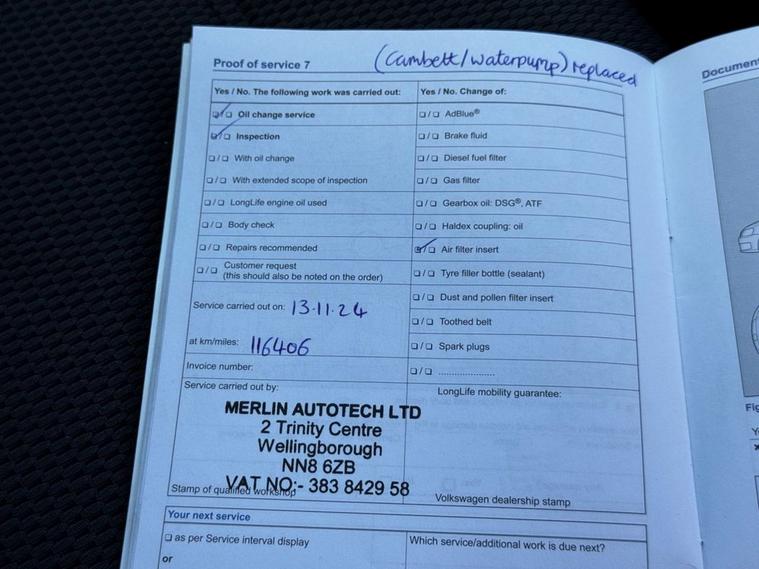 (Cambelt/waterpump) replaced
Proof of service 7
Document
Yes / No. The following work was carried out:
Yes / No. Change of:
❑/❑ Oil change service
❑/❑ AdBlue®
❑/❑ Inspection
❑/❑ Brake fluid
❑/❑ With oil change
❑/❑ Diesel fuel filter
❑/❑ With extended scope of inspection
❑/❑ Gas filter
❑/❑ LongLife engine oil used
❑/❑ Gearbox oil: DSG®, ATF
❑/❑ Body check
❑/❑ Haldex coupling: oil
❑/❑ Repairs recommended
❑/❑ Air filter insert
❑/❑ Customer request
(this should also be noted on the order)
❑/❑ Tyre filler bottle (sealant)
Service carried out on: 13.11.24
❑/❑ Dust and pollen filter insert
❑/❑ Toothed belt
at km/miles: 116406
❑/❑ Spark plugs
Invoice number:
❑/❑ ....................
Service carried out by:
LongLife mobility guarantee:
MERLIN AUTOTECH LTD
2 Trinity Centre
Wellingborough
NN8 6ZB
VAT NO:- 383 8429 58
Stamp of qualified workshop
Volkswagen dealership stamp
Fig
Your next service
❑ as per Service interval display
Which service/additional work is due next?
or